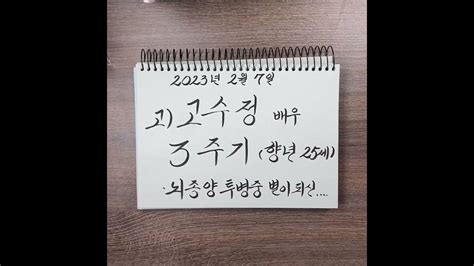 2023년 2월 7일
고) 고수정 배우
3주기 (향년 25세)
·뇌종양 투병중 별이 되신....